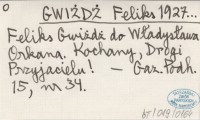 0
GWIŻDŻ Feliks 1927...
Feliks Gwiżdż do Władysława
Orkana. Kochany, Drogi
Przyjacielu! — Gaz. Podh.
15, nr 34.